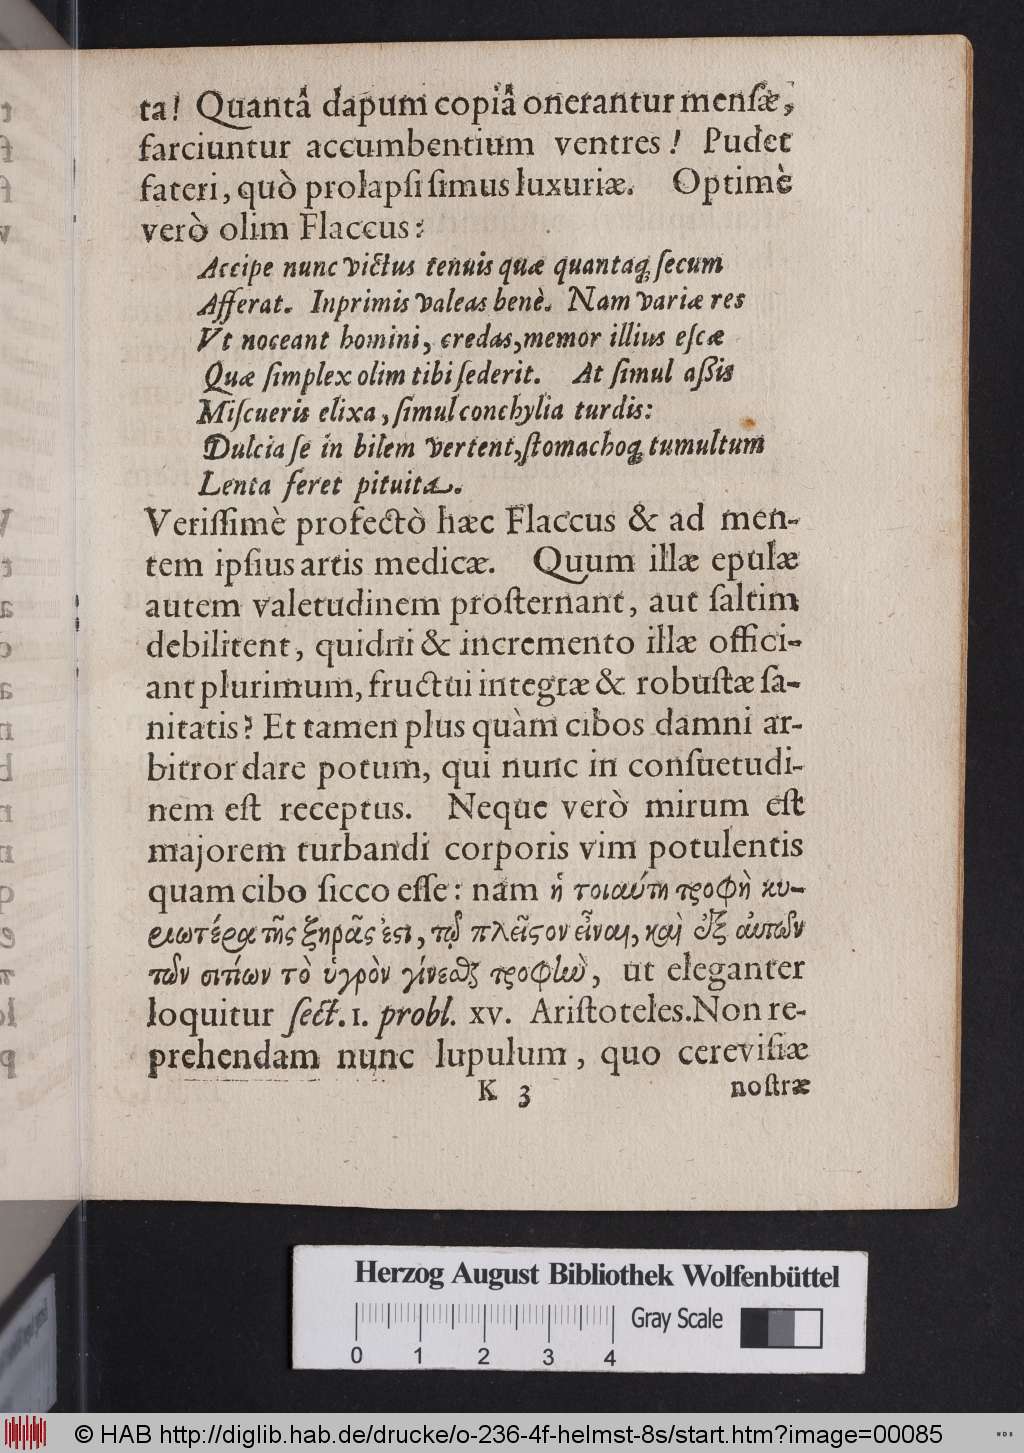 ta! Quantâ dapum copiâ onerantur mensæ,
farciuntur accumbentium ventres! Pudet
fateri, quò prolapsi simus luxuriæ. Optimè
verò olim Flaccus:
Accipe nunc victus tenuis quæ quantaq; secum
Afferat. Inprimis valeas benè. Nam variæ res
Vt noceant homini, credas, memor illius escæ
Quæ simplex olim tibi sederit. At simul aßis
Miscueris elixa, simul conchylia turdis:
Dulcia se in bilem vertent, stomachoq; tumultum
Lenta feret pituita.
Verissimè profectò hæc Flaccus & ad men-
tem ipsius artis medicæ. Quum illæ epulæ
autem valetudinem prosternant, aut saltim
debilitent, quidni & incremento illæ offici-
ant plurimum, fructui integræ & robustæ sa-
nitatis? Et tamen plus quàm cibos damni ar-
bitror dare potum, qui nunc in consuetudi-
nem est receptus. Neque verò mirum est
majorem turbandi corporis vim potulentis
quam cibo sicco esse: nam ἡ τοιαύτη τροφὴ κυ-
ριωτέρα τῆς ξηρᾶς ἐστι, τῷ πλεῖστον εἶναι, καὶ ἐξ αὐτῶν
τῶν σιτίων τὸ ὑγρὸν γίνεσθαι τροφὴν, ut eleganter
loquitur sect. 1. probl. XV. Aristoteles. Non re-
prehendam nunc lupulum, quo cerevisiæ
K 3 nostræ
Herzog August Bibliothek Wolfenbüttel
Gray Scale
0 1 2 3 4
© HAB http://diglib.hab.de/drucke/o-236-4f-helmst-8s/start.htm?image=00085